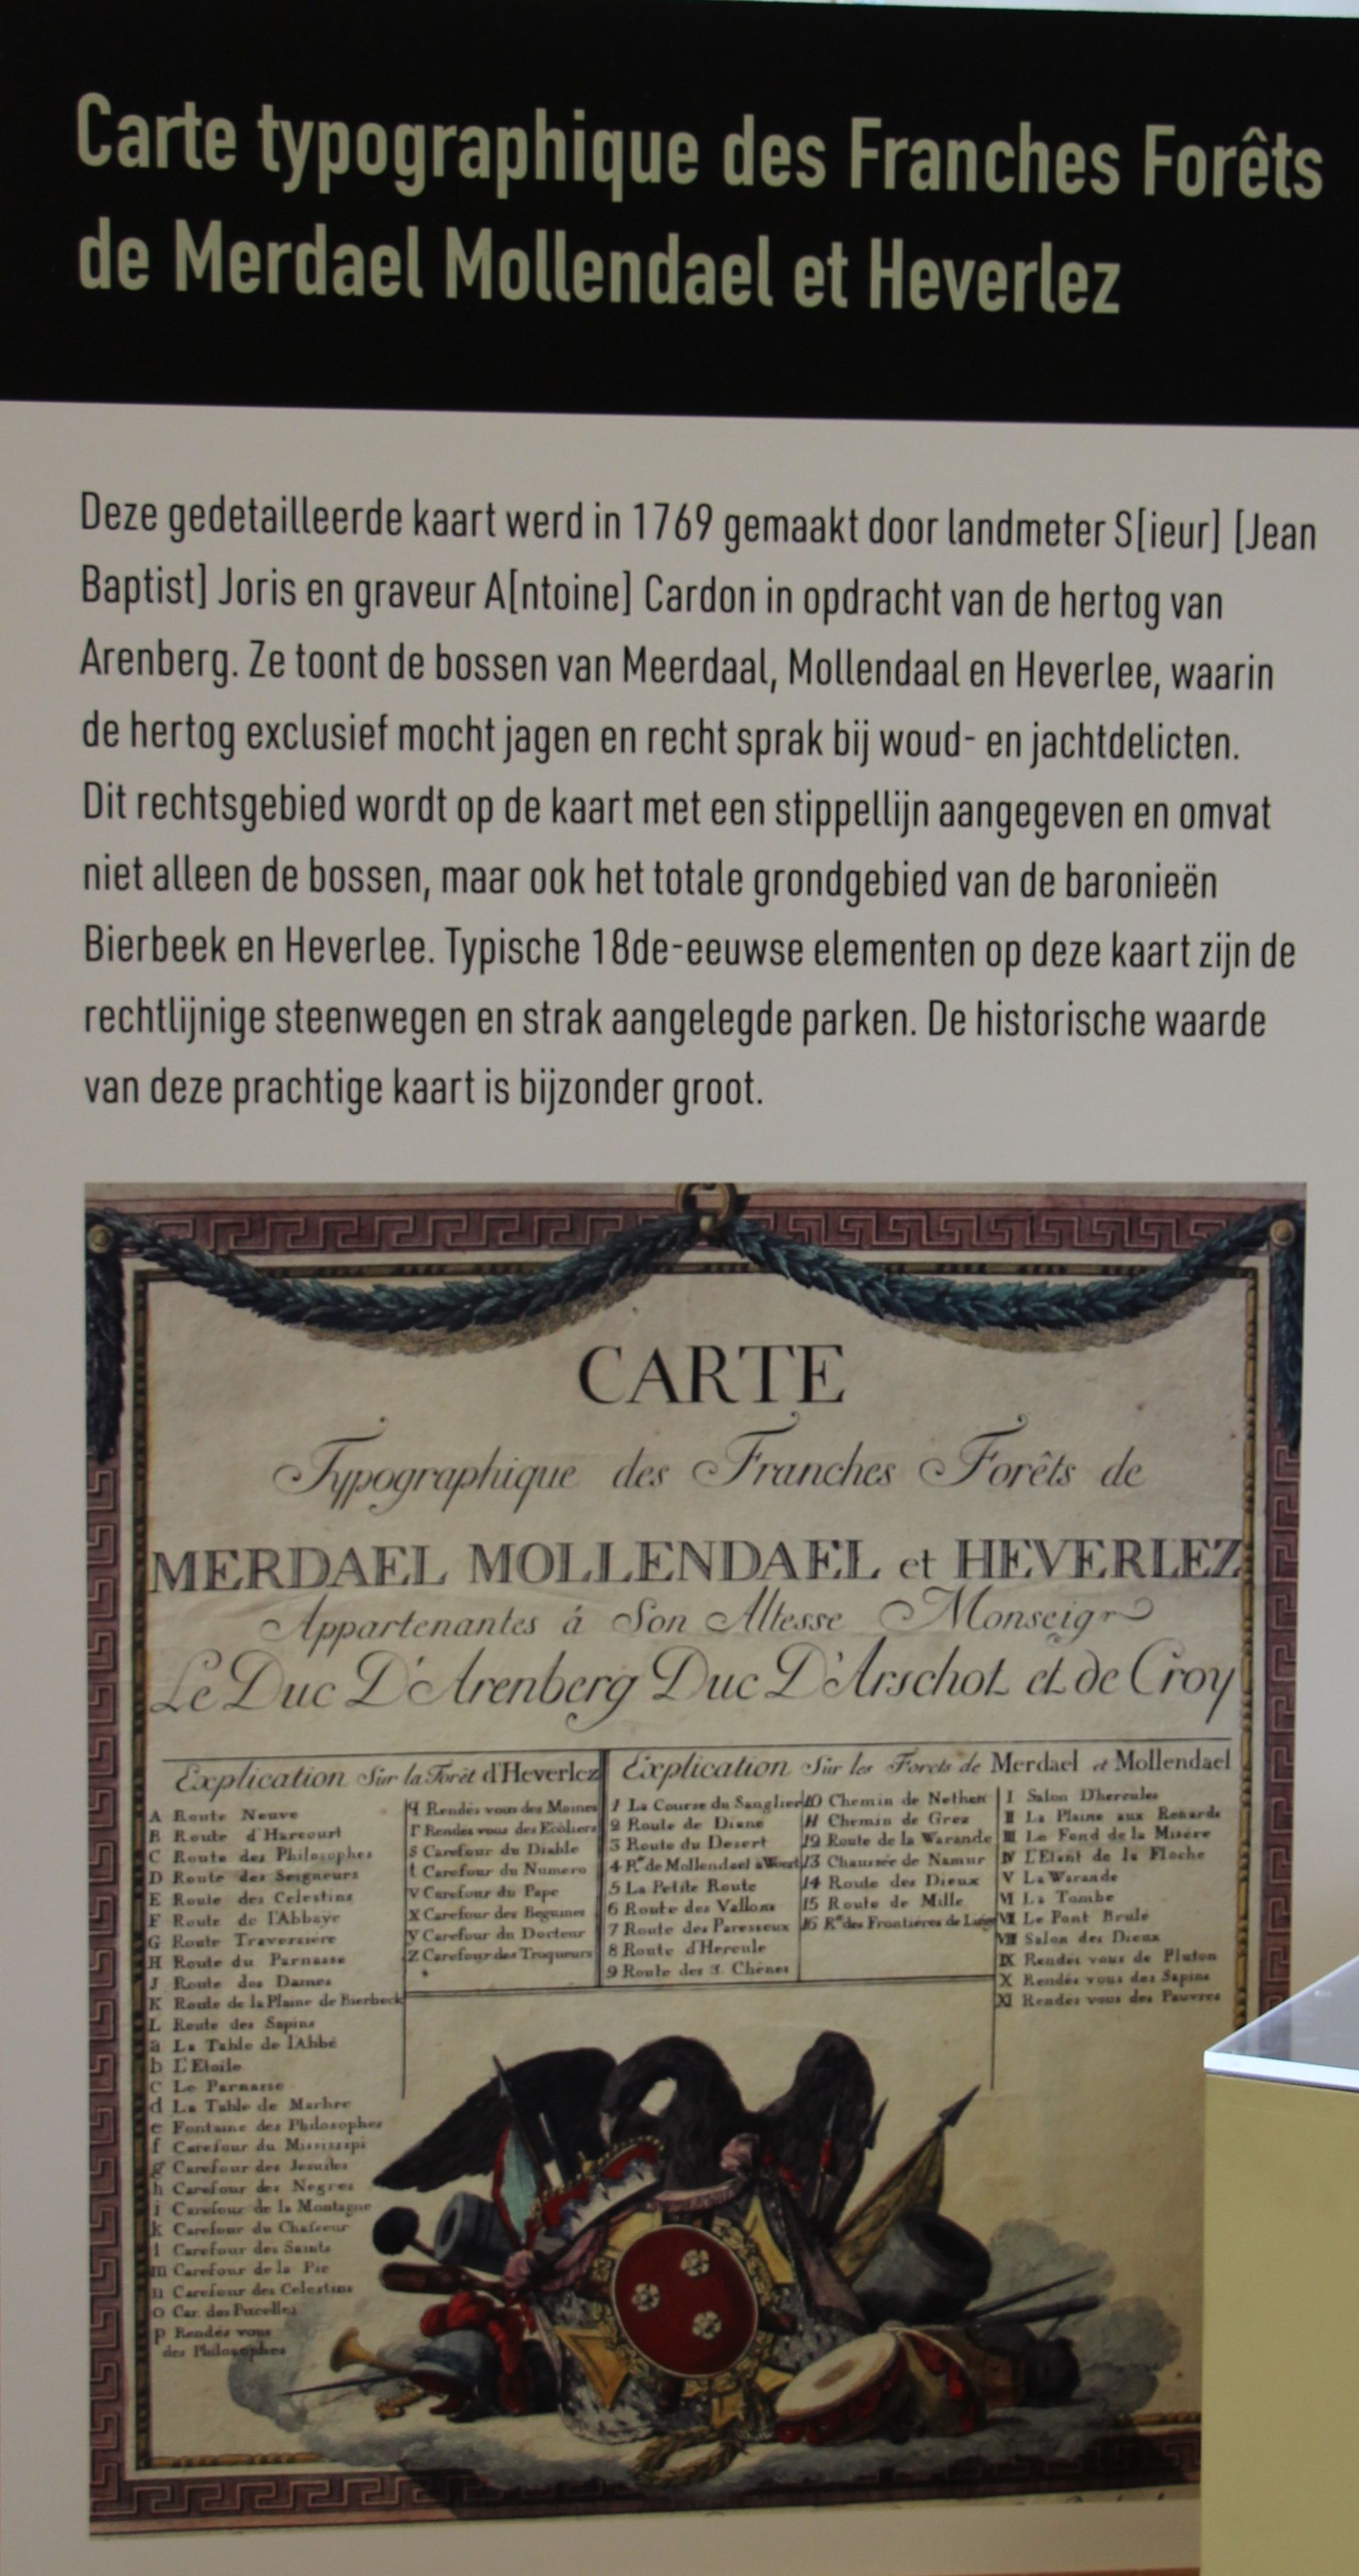 Carte typographique des Franches Forêts
de Merdael Mollendael et Heverlez
Deze gedetailleerde kaart werd in 1769 gemaakt door landmeter S[ieur] [Jean
Baptist] Joris en graveur A[ntoine] Cardon in opdracht van de hertog van
Arenberg. Ze toont de bossen van Meerdaal, Mollendaal en Heverlee, waarin
de hertog exclusief mocht jagen en recht sprak bij woud- en jachtdelicten.
Dit rechtsgebied wordt op de kaart met een stippellijn aangegeven en omvat
niet alleen de bossen, maar ook het totale grondgebied van de baronieën
Bierbeek en Heverlee. Typische 18de-eeuwse elementen op deze kaart zijn de
rechtlijnige steenwegen en strak aangelegde parken. De historische waarde
van deze prachtige kaart is bijzonder groot.
CARTE
Typographique des Franches Forêts de
MERDAEL MOLLENDAEL et HEVERLEZ
Appartenantes á Son Altesse Monseigr
Le Duc D'Arenberg Duc D'Arschot et de Croy
Explication Sur la Forêt d'Heverlez
A Route Neuve
B Route d'Harcourt
C Route des Philosophes
D Route des Seigneurs
E Route des Celestins
F Route de l'Abbaye
G Route Traversiere
H Route du Parnasse
J Route des Dames
K Route de la Plaine de Bierbeck
L Route des Sapins
a La Table de l'Abbé
b L'Etoile
c Le Parnasse
d La Table de Marbre
e Fontaine des Philosophes
f Carefour du Mississipi
g Carefour des Jesuites
h Carefour des Negres
i Carefour de la Montagne
k Carefour du Chasseur
l Carefour des Saints
m Carefour de la Pie
n Carefour des Celestins
o Car. des Pucelles
p Rendés vous
des Philosophes
q Rendés vous des Moines
r Rendés vous des Ecoliers
s Carefour du Diable
t Carefour du Numero
v Carefour du Pape
x Carefour des Beguines
y Carefour du Docteur
z Carefour des Troqueurs
Explication Sur les Forets de Merdael et Mollendael
1 La Course du Sanglier
2 Route de Diane
3 Route du Desert
4 Rte de Mollendael à
5 La Petite Route
6 Route des Vallons
7 Route des Paresseux
8 Route d'Hercule
9 Route des 3 Chênes
10 Chemin de Nethen
11 Chemin de Grez
12 Route de la Warande
13 Chaussée de Namur
14 Route des Dieux
15 Route de Mille
16 Rte des Frontieres de Liége
I Salon D'hercules
II La Plaine aux Renards
III Le Fond de la Misére
IV L'Etant de la Floche
V La Warande
VI La Tombe
VII Le Pont Brulé
VIII Salon des Dieux
IX Rendés vous de Pluton
X Rendés vous des Sapins
XI Rendes vous des Pauvres